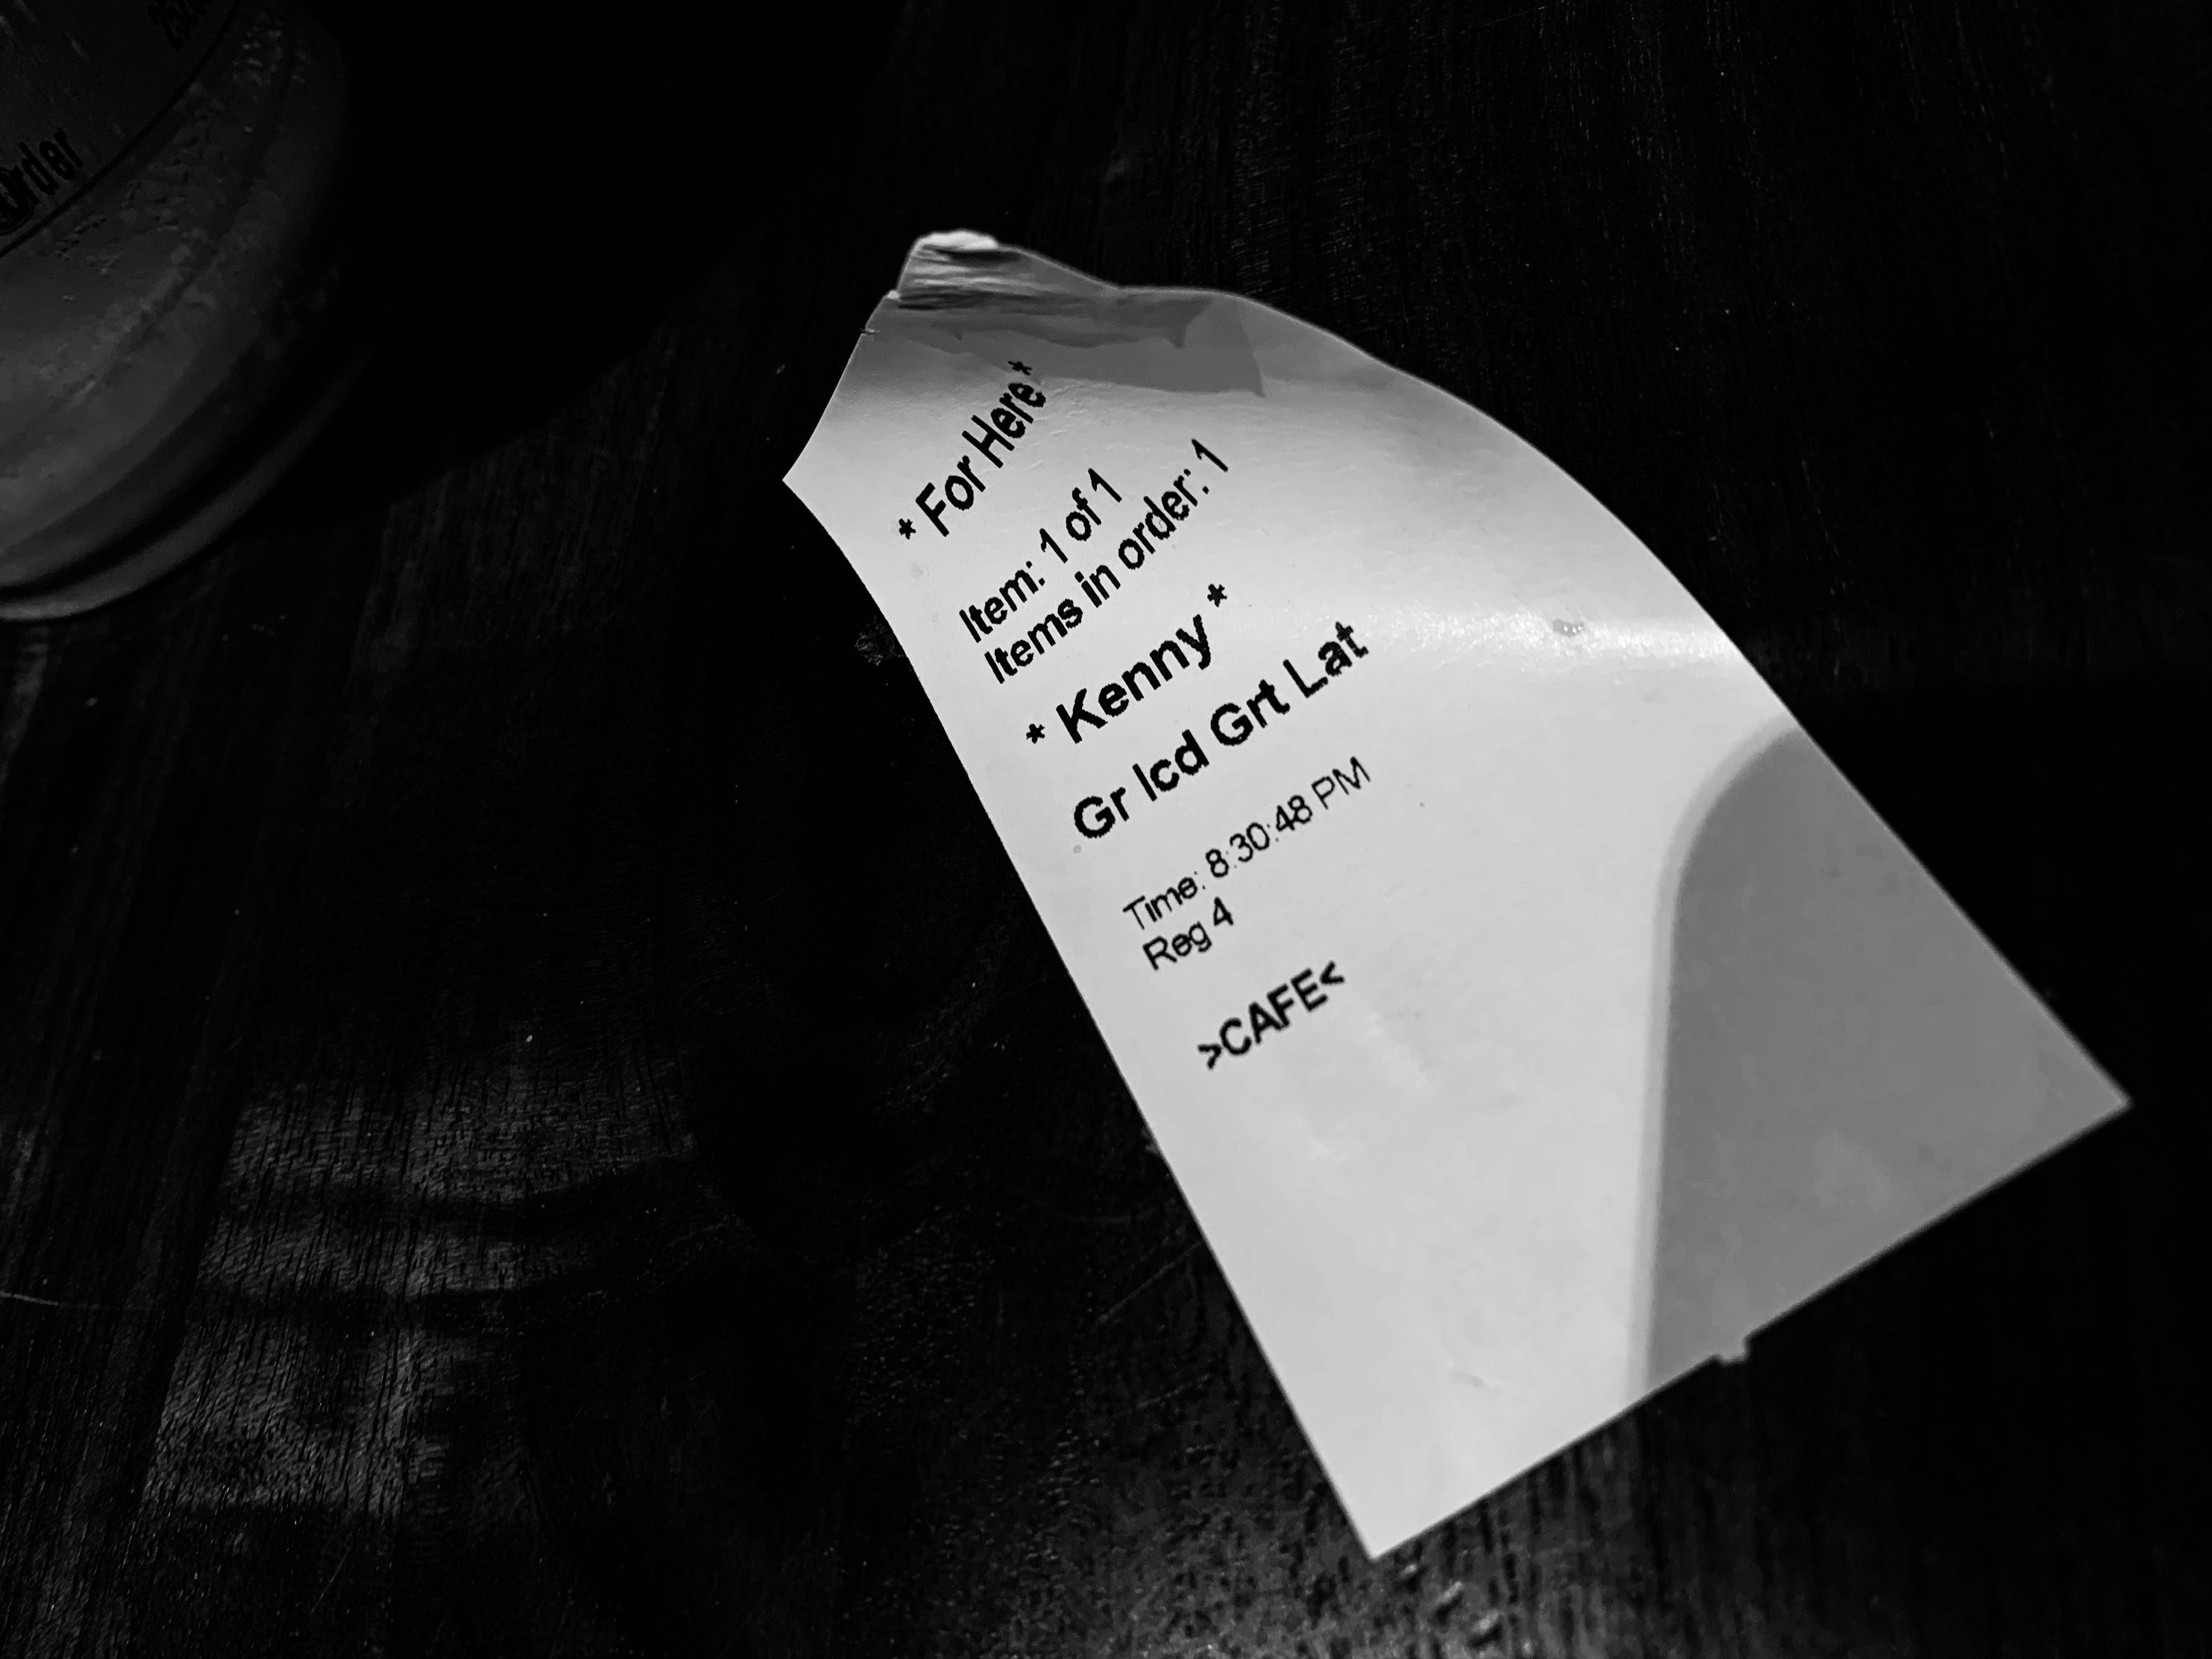 * For Here *
Item: 1 of 1
Items in order: 1
* Kenny *
Gr Icd Grt Lat
Time: 8:30:48 PM
Reg 4
>CAFE<
Order